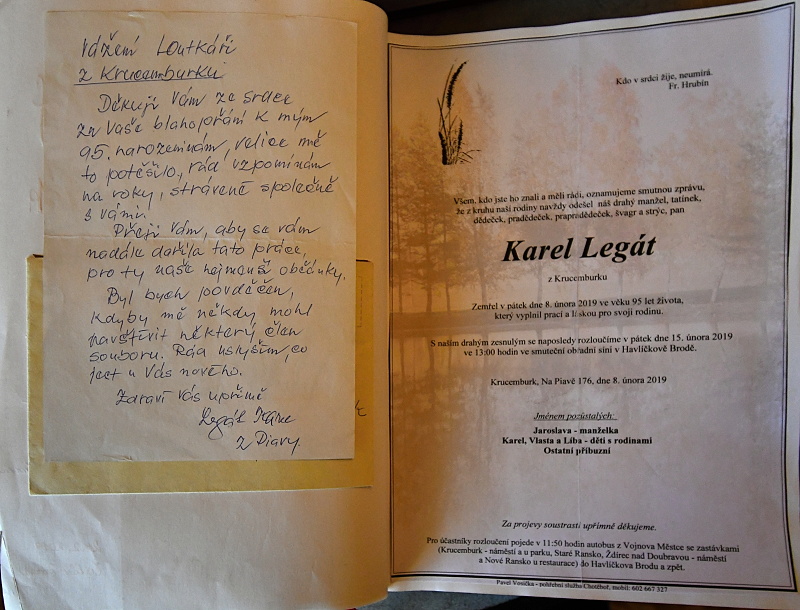 Vážení Loutkáři
z Krucemburku
Děkuji Vám ze srdce
za Vaše blahopřání k mým
95. narozeninám, velice mě
to potěšilo, rád vzpomínám
na roky, strávené společně
s vámi.
Přeji Vám, aby se vám
nadále dařila tato práce,
pro ty naše nejmenší občánky.
Byl bych povděčen,
kdyby mě někdy mohl
navštívit některý člen
souboru. Rád uslyším, co
jest u Vás nového.
Zdraví Vás upřímě
Legát
z Piavy.
Kdo v srdci žije, neumírá.
Fr. Hrubín
Všem, kdo jste ho znali a měli rádi, oznamujeme smutnou zprávu,
že z kruhu naší rodiny navždy odešel náš drahý manžel, tatínek,
dědeček, pradědeček, prapradědeček, švagr a strýc, pan
Karel Legát
z Krucemburku
Zemřel v pátek dne 8. února 2019 ve věku 95 let života,
který vyplnil prací a láskou pro svoji rodinu.
S naším drahým zesnulým se naposledy rozloučíme v pátek dne 15. února 2019
ve 13:00 hodin ve smuteční obřadní síni v Havlíčkově Brodě.
Krucemburk, Na Piavě 176, dne 8. února 2019
Jménem pozůstalých:
Jaroslava - manželka
Karel, Vlasta a Liba - děti s rodinami
Ostatní příbuzní
Za projevy soustrasti upřímně děkujeme.
Pro účastníky rozloučení pojede v 11:50 hodin autobus z Vojnova Městce se zastávkami
(Krucemburk - náměstí a u parku, Staré Ransko, Ždírec nad Doubravou - náměstí
a Nové Ransko u restaurace) do Havlíčkova Brodu a zpět.
Pavel Vosička - pohřební služba Chotěboř, mobil: 602 667 327